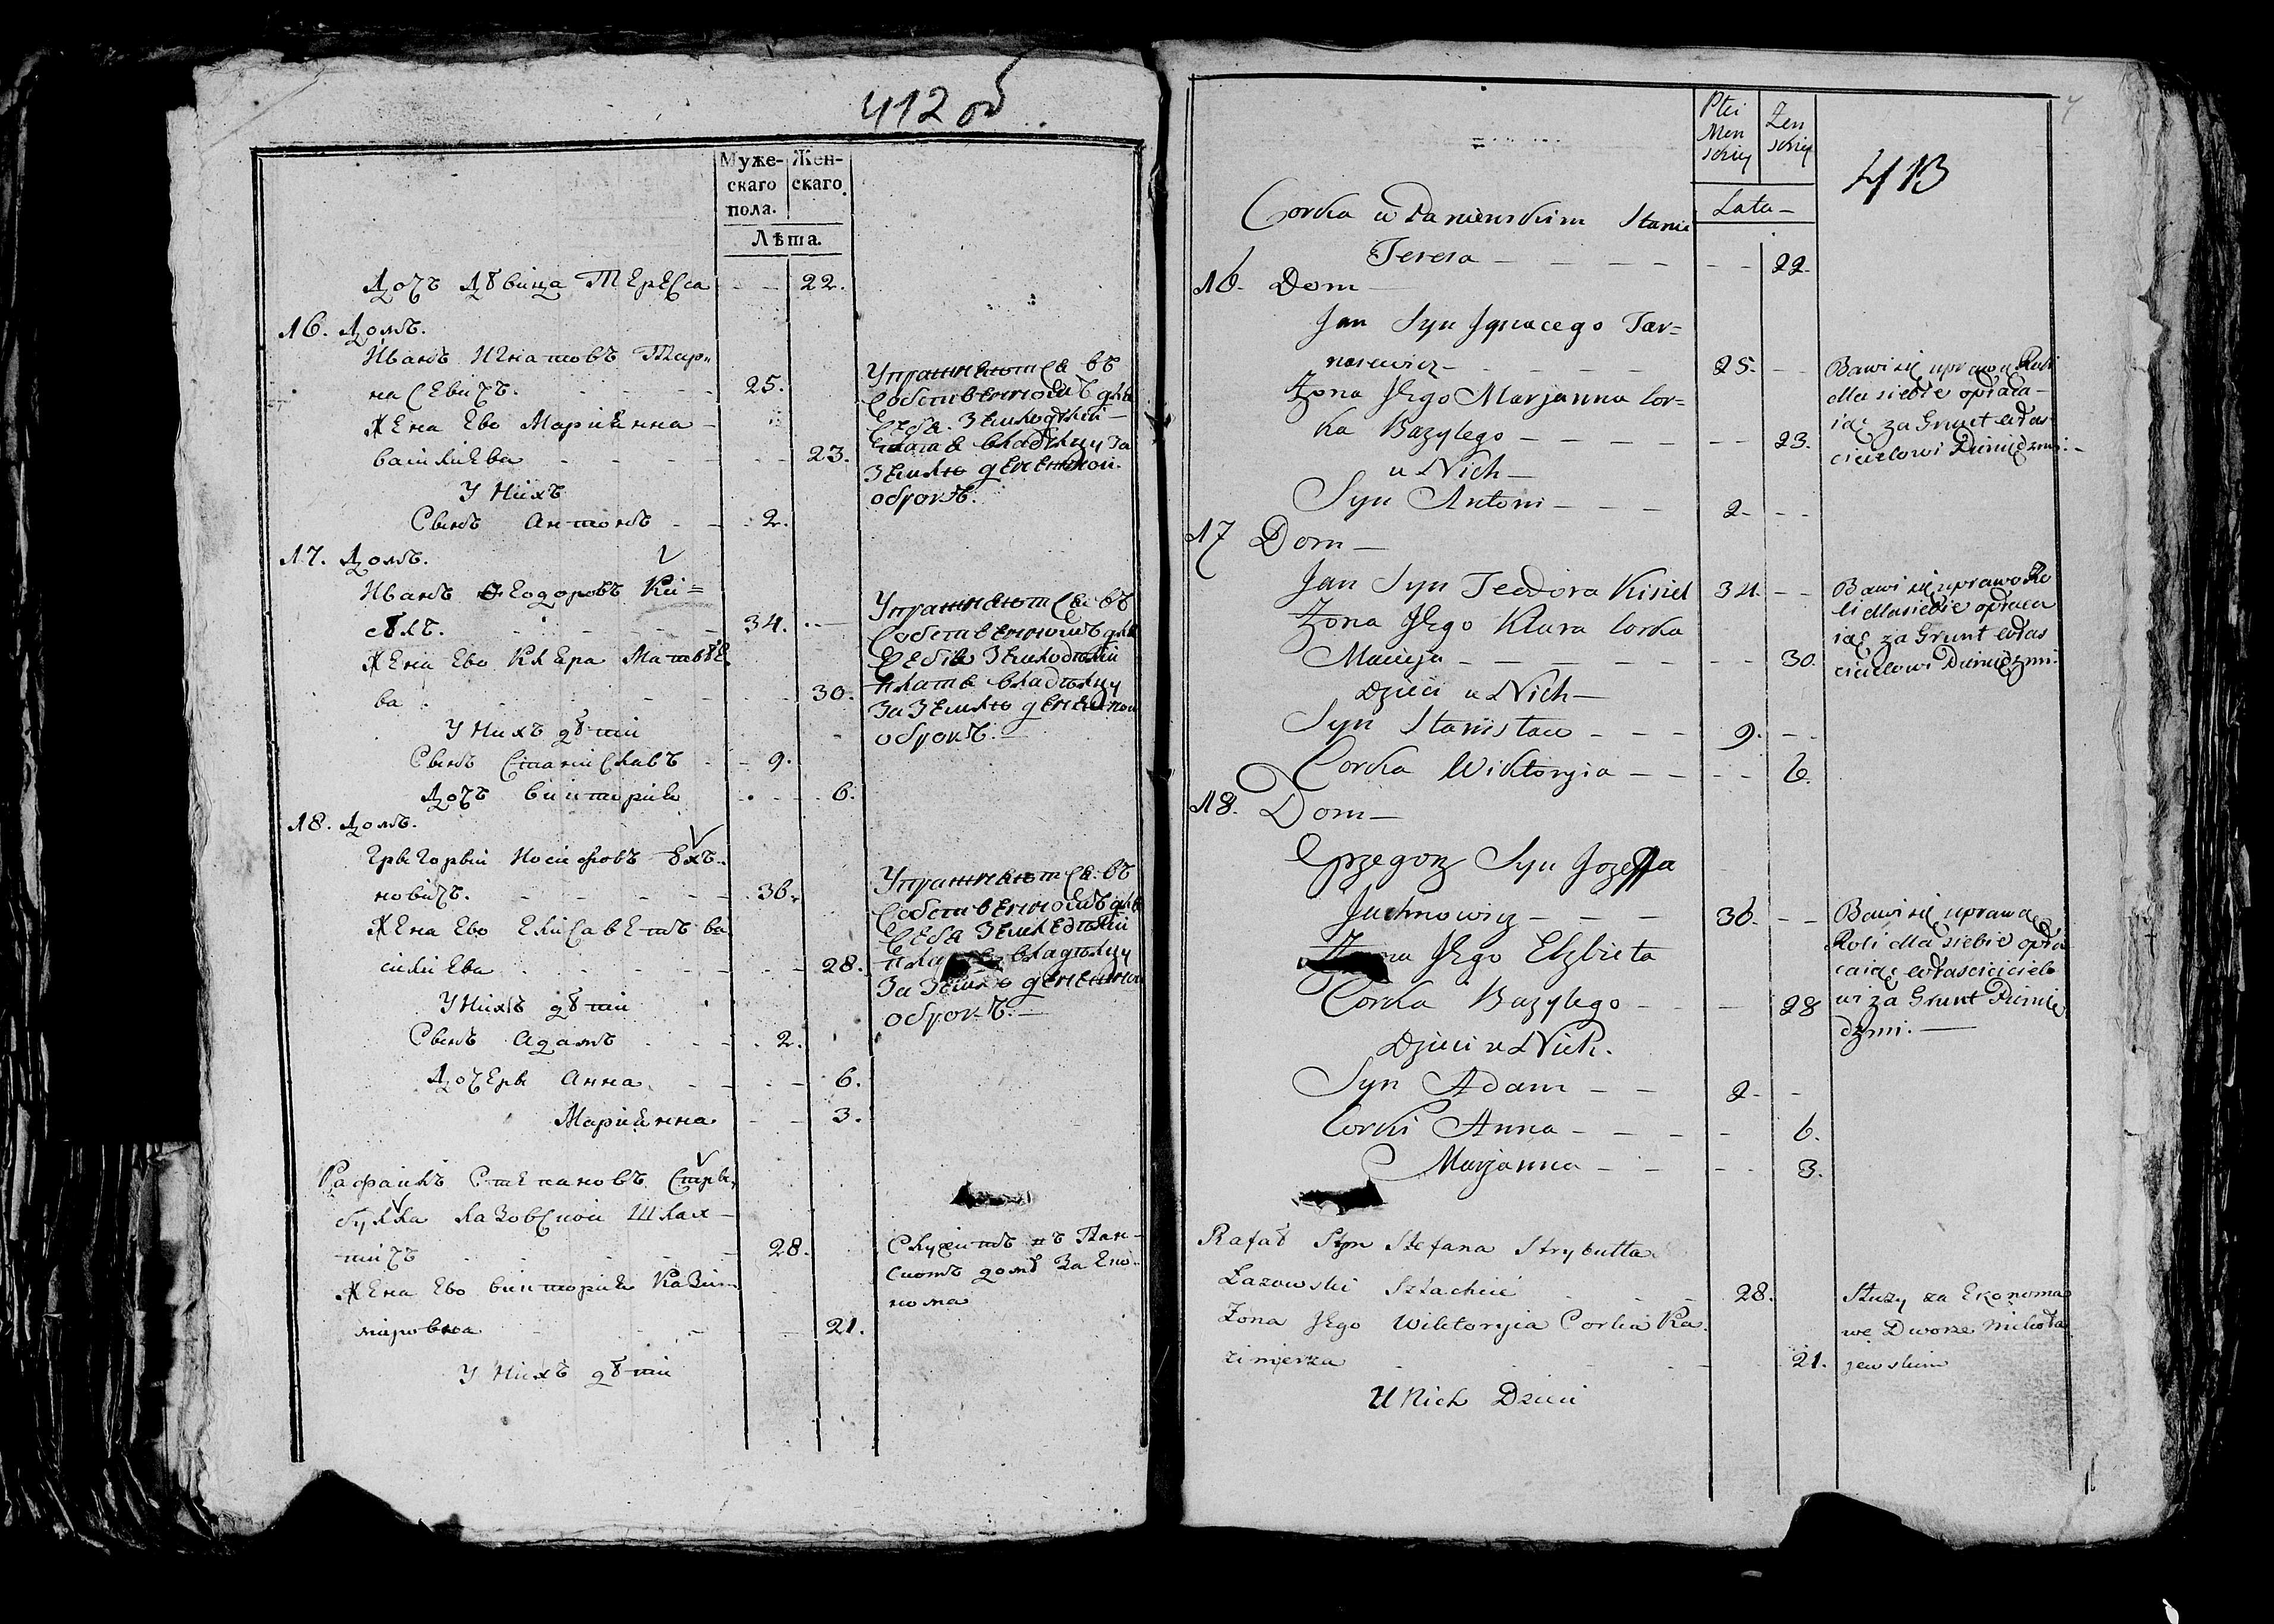 412 об
Муже- Жен-
скаго скаго
пола.
Лѣта.
Дочъ дѣвица Тереса 22.
16. Домъ.
Иванъ Игнатовъ Тар-
насевичъ. 25.
Жена Ево Марианна
василиева 23.
У нихъ
Сынъ Антонъ 2.
Упражняется въ
собственномъ для
себя земледѣлiи
платя владѣлцу за
землю денежной
оброкъ.
17. Домъ.
Иванъ Ѳеодоровъ Ки=
сѣлъ. 34.
Жена Ево Клара Матвѣе
ва 30.
У нихъ дѣти
Сынъ Станиславъ 9.
Дочъ виктория 6.
Упражняется въ
собственномъ для
себя земледѣлiи
платя владѣлцу
за землю денежной
оброкъ.
18. Домъ.
Грыгорый Иосифовъ Ѣх-
новичъ. 36.
Жена Ево Елисаветъ ва
силиева 28.
У нихъ дѣти
Сынъ Адамъ 2.
Дочеры Анна 6.
Марианна 3.
Упражняется въ
собственномъ для
себя земледѣлiи
владѣлцу
за землю денежной
оброкъ.
Рафаилъ Степановъ Стры-
булла лазовской Шлях-
тичъ 28.
Жена Ево виктория Кази
мировна 21.
У нихъ дѣти
Служитъ въ Пан-
скомъ домѣ за Эко-
нома
413
Płci Żen
Men skiey
skiey
Lata
Corka w Panieńskim Stanie
Teresa 22.
16. Dom
Jan Syn Jgnacego Tar=
nasewicz 25.
Zona Jego Marjanna Cor=
ka Bazylego 23.
u Nich
Syn Antoni 2
Bawi się uprawą Roli
dla siebie opłaca-
iąc za Grunt właś
cicielowi Pieniędzmi.
17 Dom
Jan Syn Teodora Kisiel 34.
Zona Jego Klara Corka
Macieja 30.
Dzieci u Nich
Syn Stanisław 9.
Corka Wiktoryia 6.
Bawi się uprawą Ro
li dla siebie opłaca
iąc za Grunt właś
cicielowi Pieniędzmi.
18. Dom
Grzegorz Syn Jozeffa
Juchnowicz 36.
Zona Jego Elzbieta
Corka Bazylego 28
Dzieci u Nich.
Syn Adam 2
Corki Anna 6.
Marjanna 3.
Bawi się uprawą
Roli dla siebie opła
caiąc właścicielo
wi za Grunt Pienię
dzmi.
Rafał Syn Stefana Strybułła
Łazowski Szlachcic 28.
Zona Jego Wiktoryia Corka Ka
zimierza 21.
U Nich Dzieci
Służy za Ekonoma
we Dworze Mikoła
jewskim